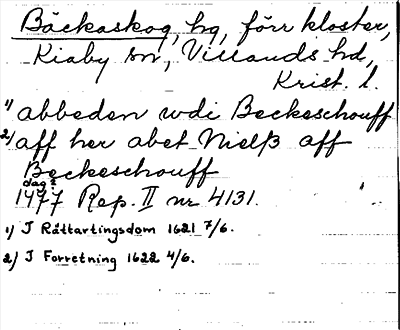 Bäckaskog, hg, förr kloster,
Kiaby sn, Villands hd,
Krist. l.
1) abbeden udi Beckeschouff
2) aff her abet Nielß aff
Beckeschouff
dag?
1477 Rep. II nr 4131.
1) I Råttartingsdom 1621 7/6.
2) I Forretning 1622 4/6.